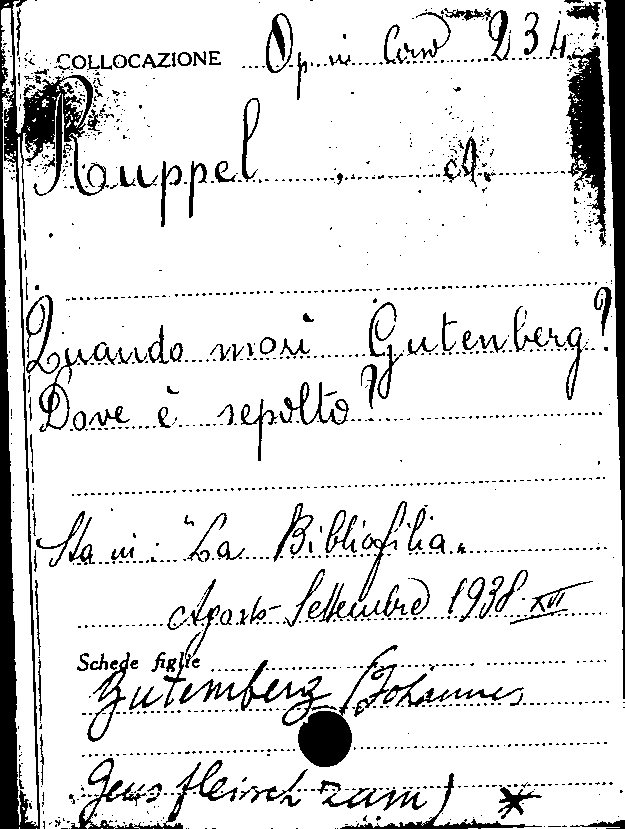 COLLOCAZIONE Op. in Cons 234
Ruppel, A.
Quando morì Gutenberg?
Dove è sepolto?
Sta in: "La Bibliofilia"
Agosto-Settembre 1938-XVI
Schede figlie
Gutemberg (Johannes
Gensfleisch zum)
*